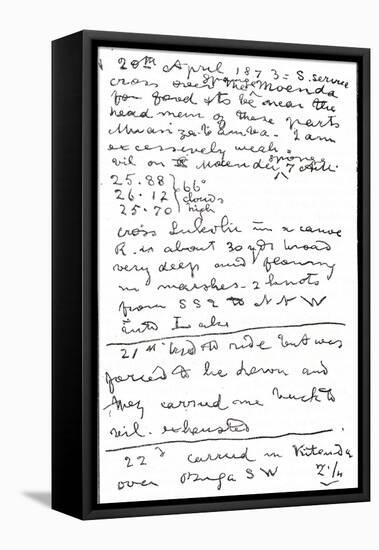 20th April 1873 = S. service
cross over the sponge Moenda
for food & to be near the
head men of these parts
Muanzambamba. I am
excessively weak
vil on Moenda sponge 7 Alt.
25.88
26.12 66° clouds
25.70 high
cross Lukolu in a canoe
R. is about 30 yds broad
very deep and flowing
in marshes - 2 knots
from SSE to NNW
into Lake
21st tried to ride but was
forced to lie down and
they carried me back to
vil. exhausted
22d carried in Kitenda
over Buga SW 2 1/4